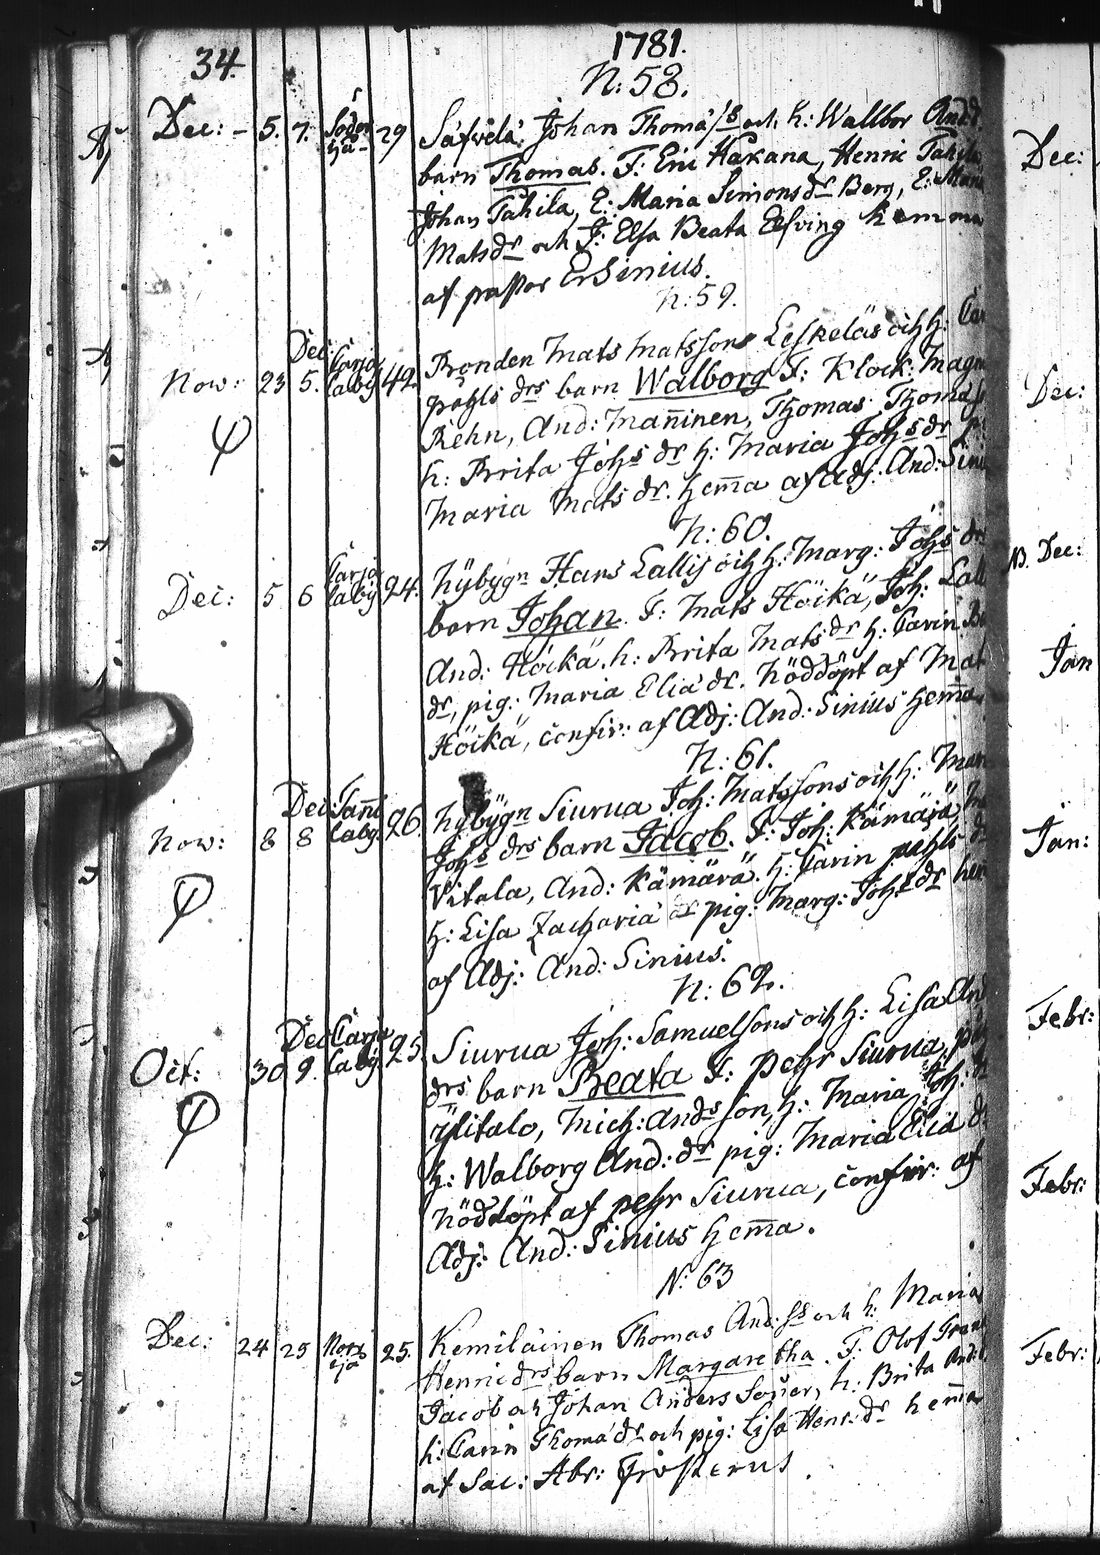 34.
1781.
N: 58.
Dec: – 5. 7. Söder 29 Säfvilä: Johan Thomä/s och h: Wallbor And:d.
barn Thomas. F: Eric Hakana, Henric Tahila,
Johan Tahila, E: Maria Simons dr Berg, E: Maria
Mats dr och J: Elsa Beata Elfving hemma
af pastor Ersenius.
N: 59.
Now: 23 Dec: 5. Carja laby 42. Bonden Mats Matssons Leskeläs och h: Car
pähls drs barn Walborg F: Klock: Magn
Rehn, And: Mañinen, Thomas Thomä
h: Brita Johs dr h: Maria Johs dr p:
Maria Mats dr. hem̄a af Adj: And: Sini
N: 60.
Dec: 5 6 Carja laby 24. Nybygn Hans Lallis och h: Marg: Johs dr
barn Johan. F: Mats Höikä, Joh: Lall
And: Höikä, h: Brita Mats dr h: Carin
dr, pig: Maria Eliä dr. Nöddöpt af Mat
Höikä, confir: af Adj: And: Sinius hem̄a.
N: 61.
Now: 8 Dec: 8 laby. 26. Nybygn Siurua Joh: Matssons och h: Mar
Johs drs barn Jacob. F: Joh: Kämärä,
Vitala, And: Kämärä. h: Carin pehls d
h: Lisa Zachariä dr pig: Marg: Johs dr hem
af Adj: And: Sinius.
N: 62.
Oct: 30 Dec 9. Carja laby. 25. Siurua Joh: Samuelsons och h: Lisa And
drs barn Beata F: pehr Siurua,
ÿlitalo, Mich: Ands son, h: Maria Joh:
h: Walborg And: dr pig: Maria Eliä d:
Nöddöpt af pehr Siurua, confir: af
Adj: And: Sinius hem̄a.
N: 63
Dec: 24 25 Norr 25. Kemiläinen Thomas And: ss och h: Maria
Henric drs barn Margaretha. F: Olof
Jacob och Johan Anders Söner, h: Brita And:
h: Carin Thomä dr och pig: Lisa Henr: dr hem̄a
af Sac: Abr: Frosterus.
Dec:
Dec:
N. Dec:
Jan
Jan:
Febr:
Febr:
Febr: